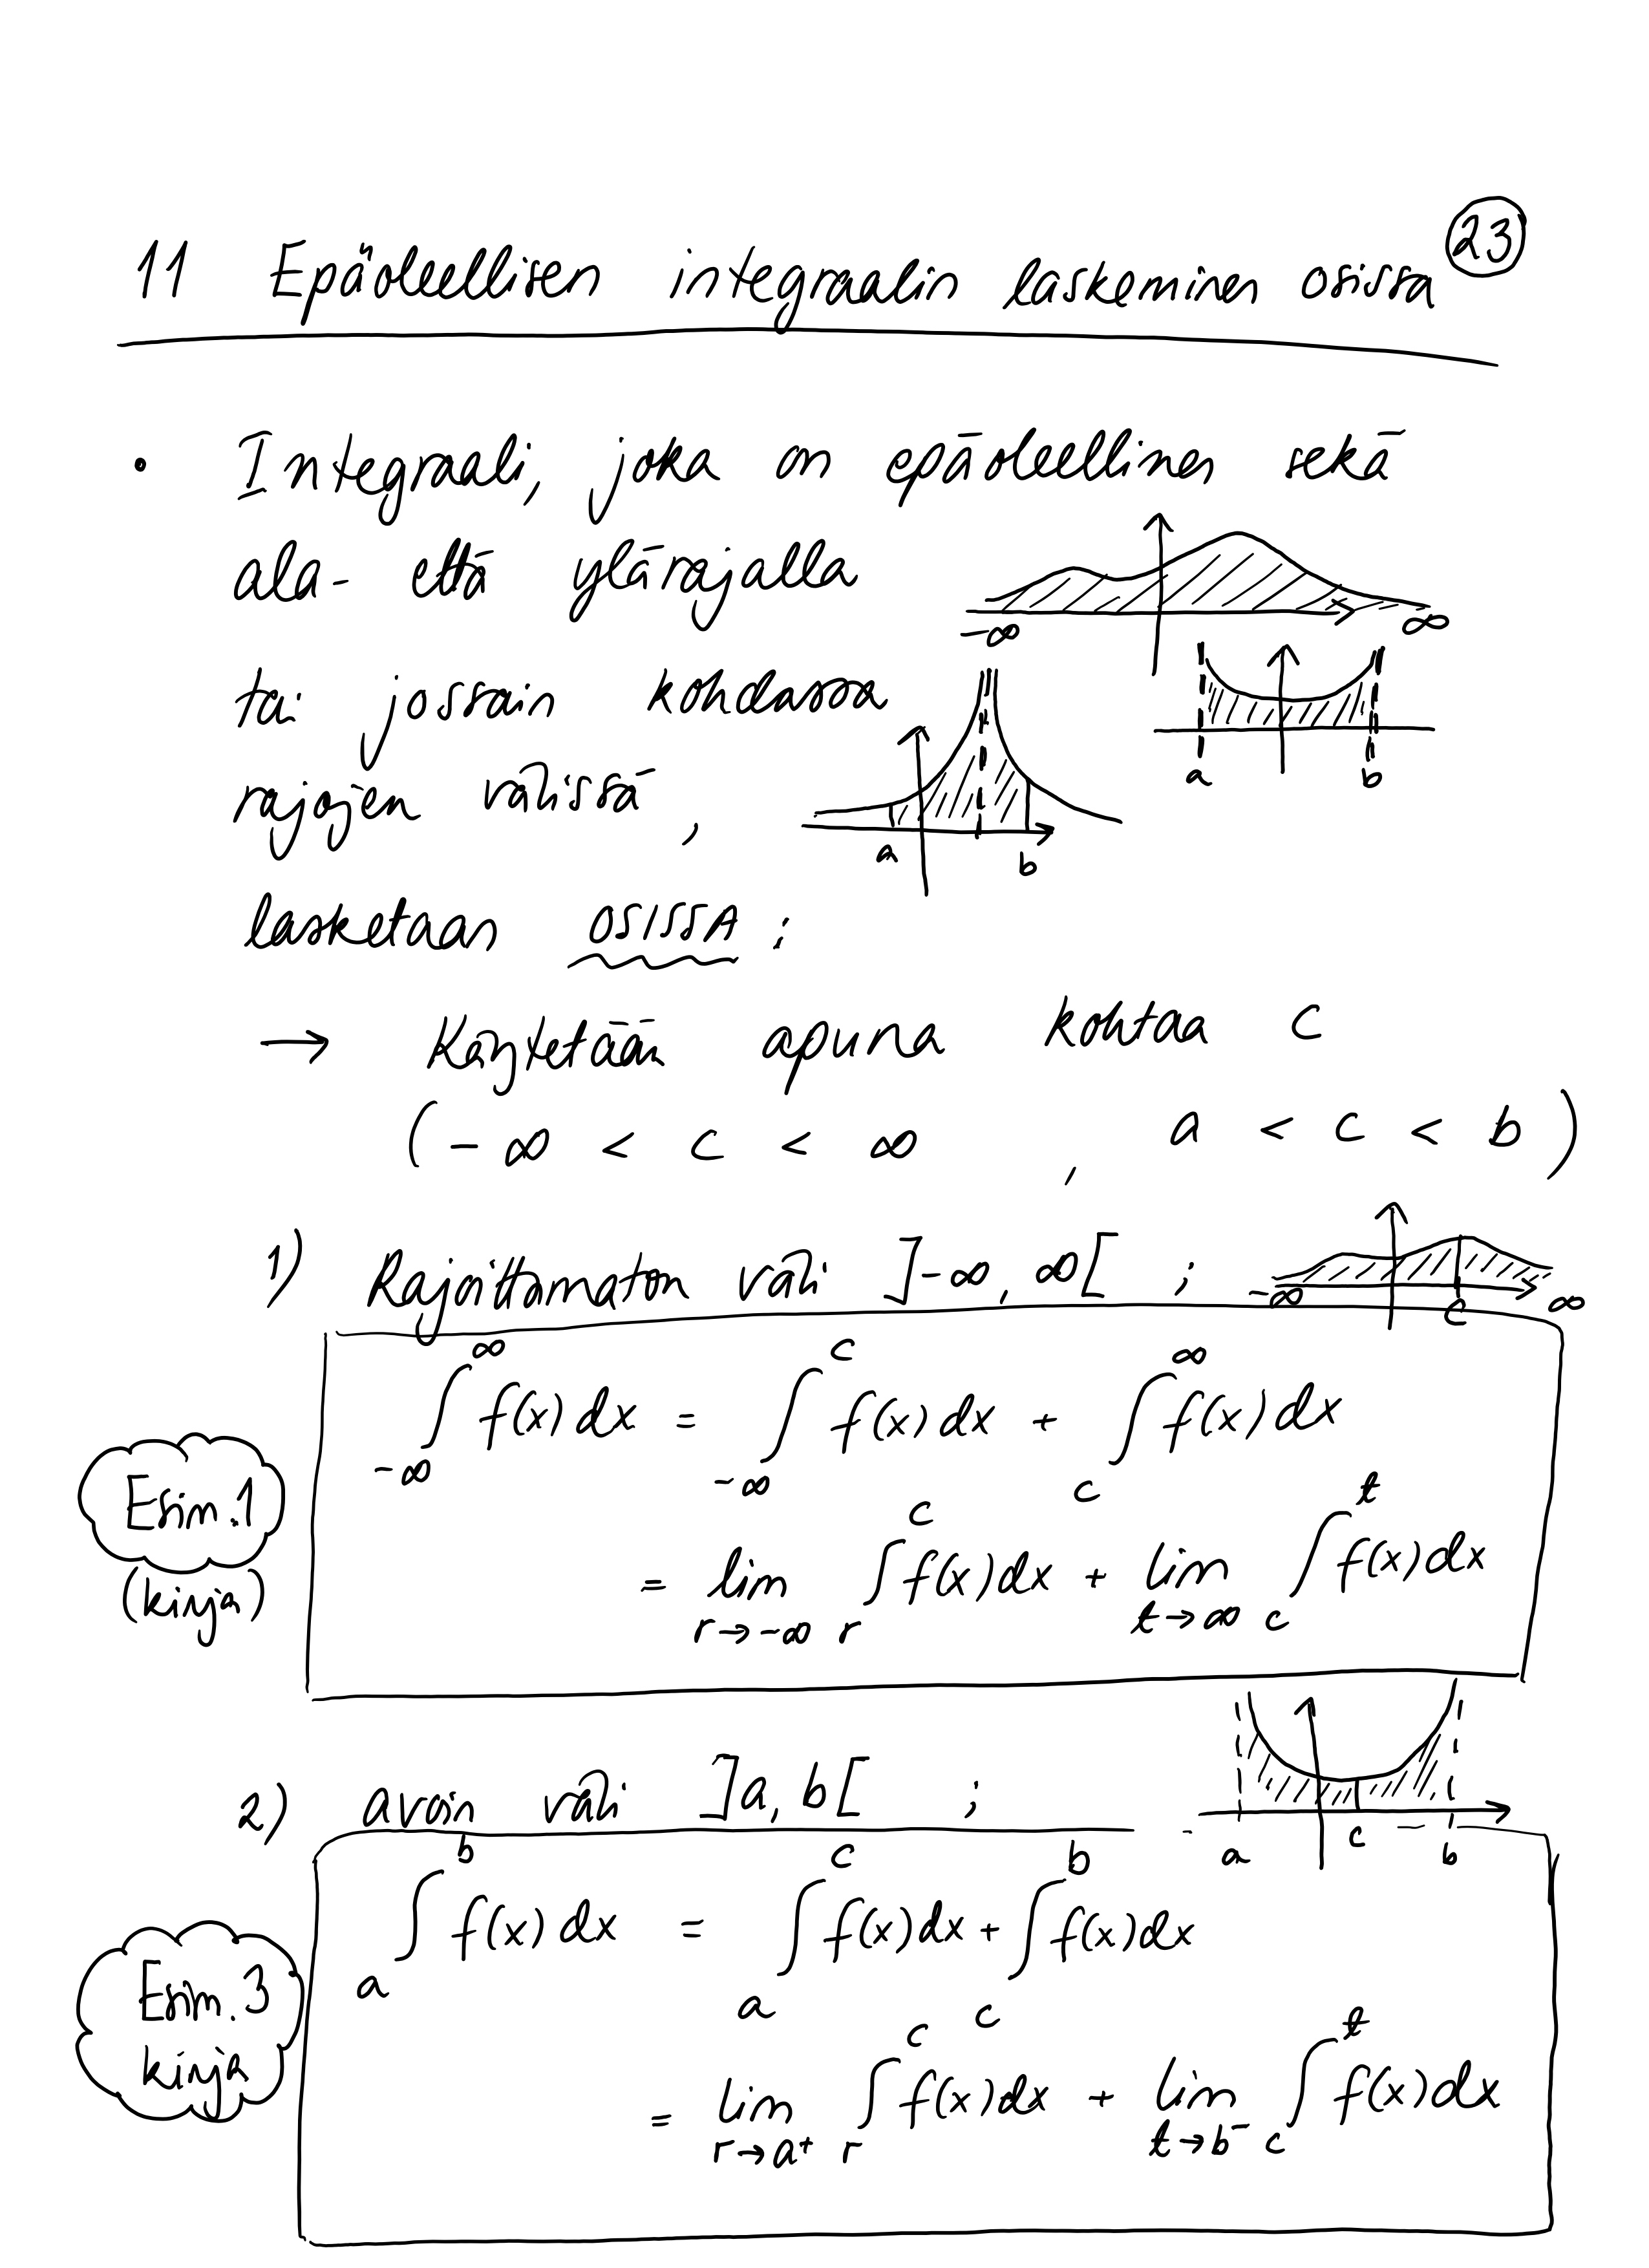 23
11 Epäoleellisen integraalin laskeminen osissa
• Integraali, joka on epäoleellinen sekä
ala- että ylärajalla
-∞ ∞
tai jossain kohdassa
a b
rajojen välissä,
a b
lasketaan OSISSA :
→ Käytetään apuna kohtaa c
(-∞ < c < ∞ , a < c < b)
1) Rajoittamaton väli ]-∞, ∞[ :
-∞ c ∞
∫_{-∞}^{∞} f(x) dx = ∫_{-∞}^{c} f(x) dx + ∫_{c}^{∞} f(x) dx
Esim. 1
(kirja)
= lim_{r→-∞} ∫_{r}^{c} f(x) dx + lim_{t→∞} ∫_{c}^{t} f(x) dx
2) avoin väli ]a, b[ :
a c b
∫_{a}^{b} f(x) dx = ∫_{a}^{c} f(x) dx + ∫_{c}^{b} f(x) dx
Esim. 3
kirja
= lim_{r→a⁺} ∫_{r}^{c} f(x) dx + lim_{t→b⁻} ∫_{c}^{t} f(x) dx